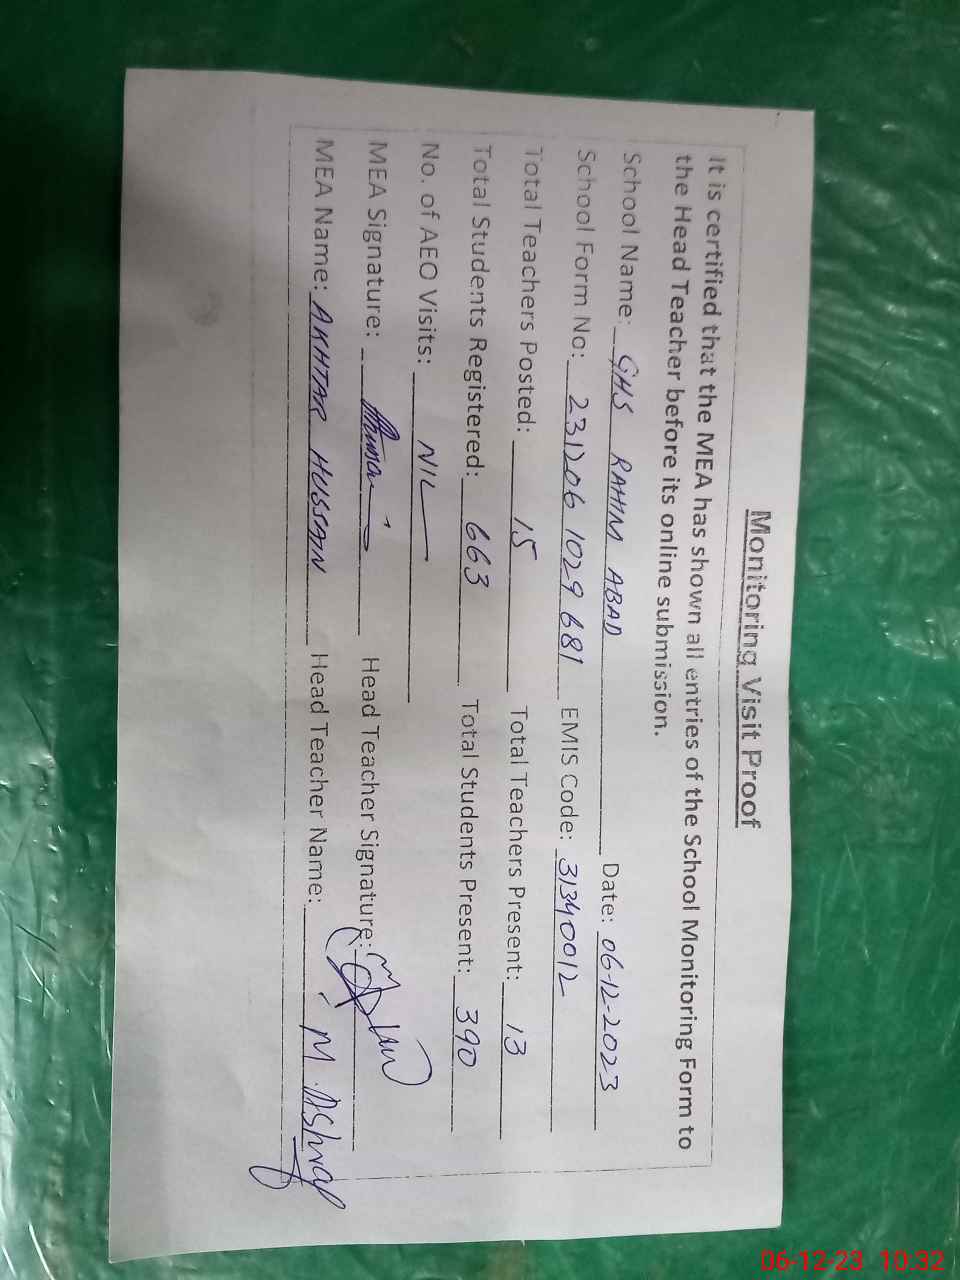 Monitoring Visit Proof
It is certified that the MEA has shown all entries of the School Monitoring Form to
the Head Teacher before its online submission.
School Name: GHS RAHIM ABAD Date: 06-12-2023
School Form No: 231206 1029 681 EMIS Code: 31340012
Total Teachers Posted: 15 Total Teachers Present: 13
Total Students Registered: 663 Total Students Present: 390
No. of AEO Visits: NIL
MEA Signature: Head Teacher Signature:
MEA Name: AKHTAR HUSSAIN Head Teacher Name: M. Ashraf
06-12-23 10:32